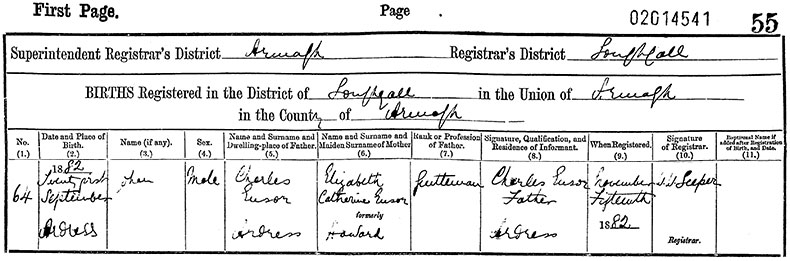 First Page. Page 02014541 55
Superintendent Registrar's District Armagh Registrar's District Loughgall
BIRTHS Registered in the District of Loughgall in the Union of Armagh
in the County of Armagh
No. Date and Place of Birth. Name (if any). Sex. Name and Surname and Dwelling-place of Father. Name and Surname and Maiden Surname of Mother Rank or Profession of Father. Signature, Qualification, and Residence of Informant. When Registered. Signature of Registrar. Baptismal Name if added after Registration of Birth, and Date.
(1.) (2.) (3.) (4.) (5.) (6.) (7.) (8.) (9.) (10.) (11.)
1882
Twenty first Male Charles Elizabeth Gentleman Charles Ensor November Leeper
64 September Ensor Catherine Ensor Father Fifteenth
formerly
Ardress Ardress Howard Ardress 1882
Registrar.